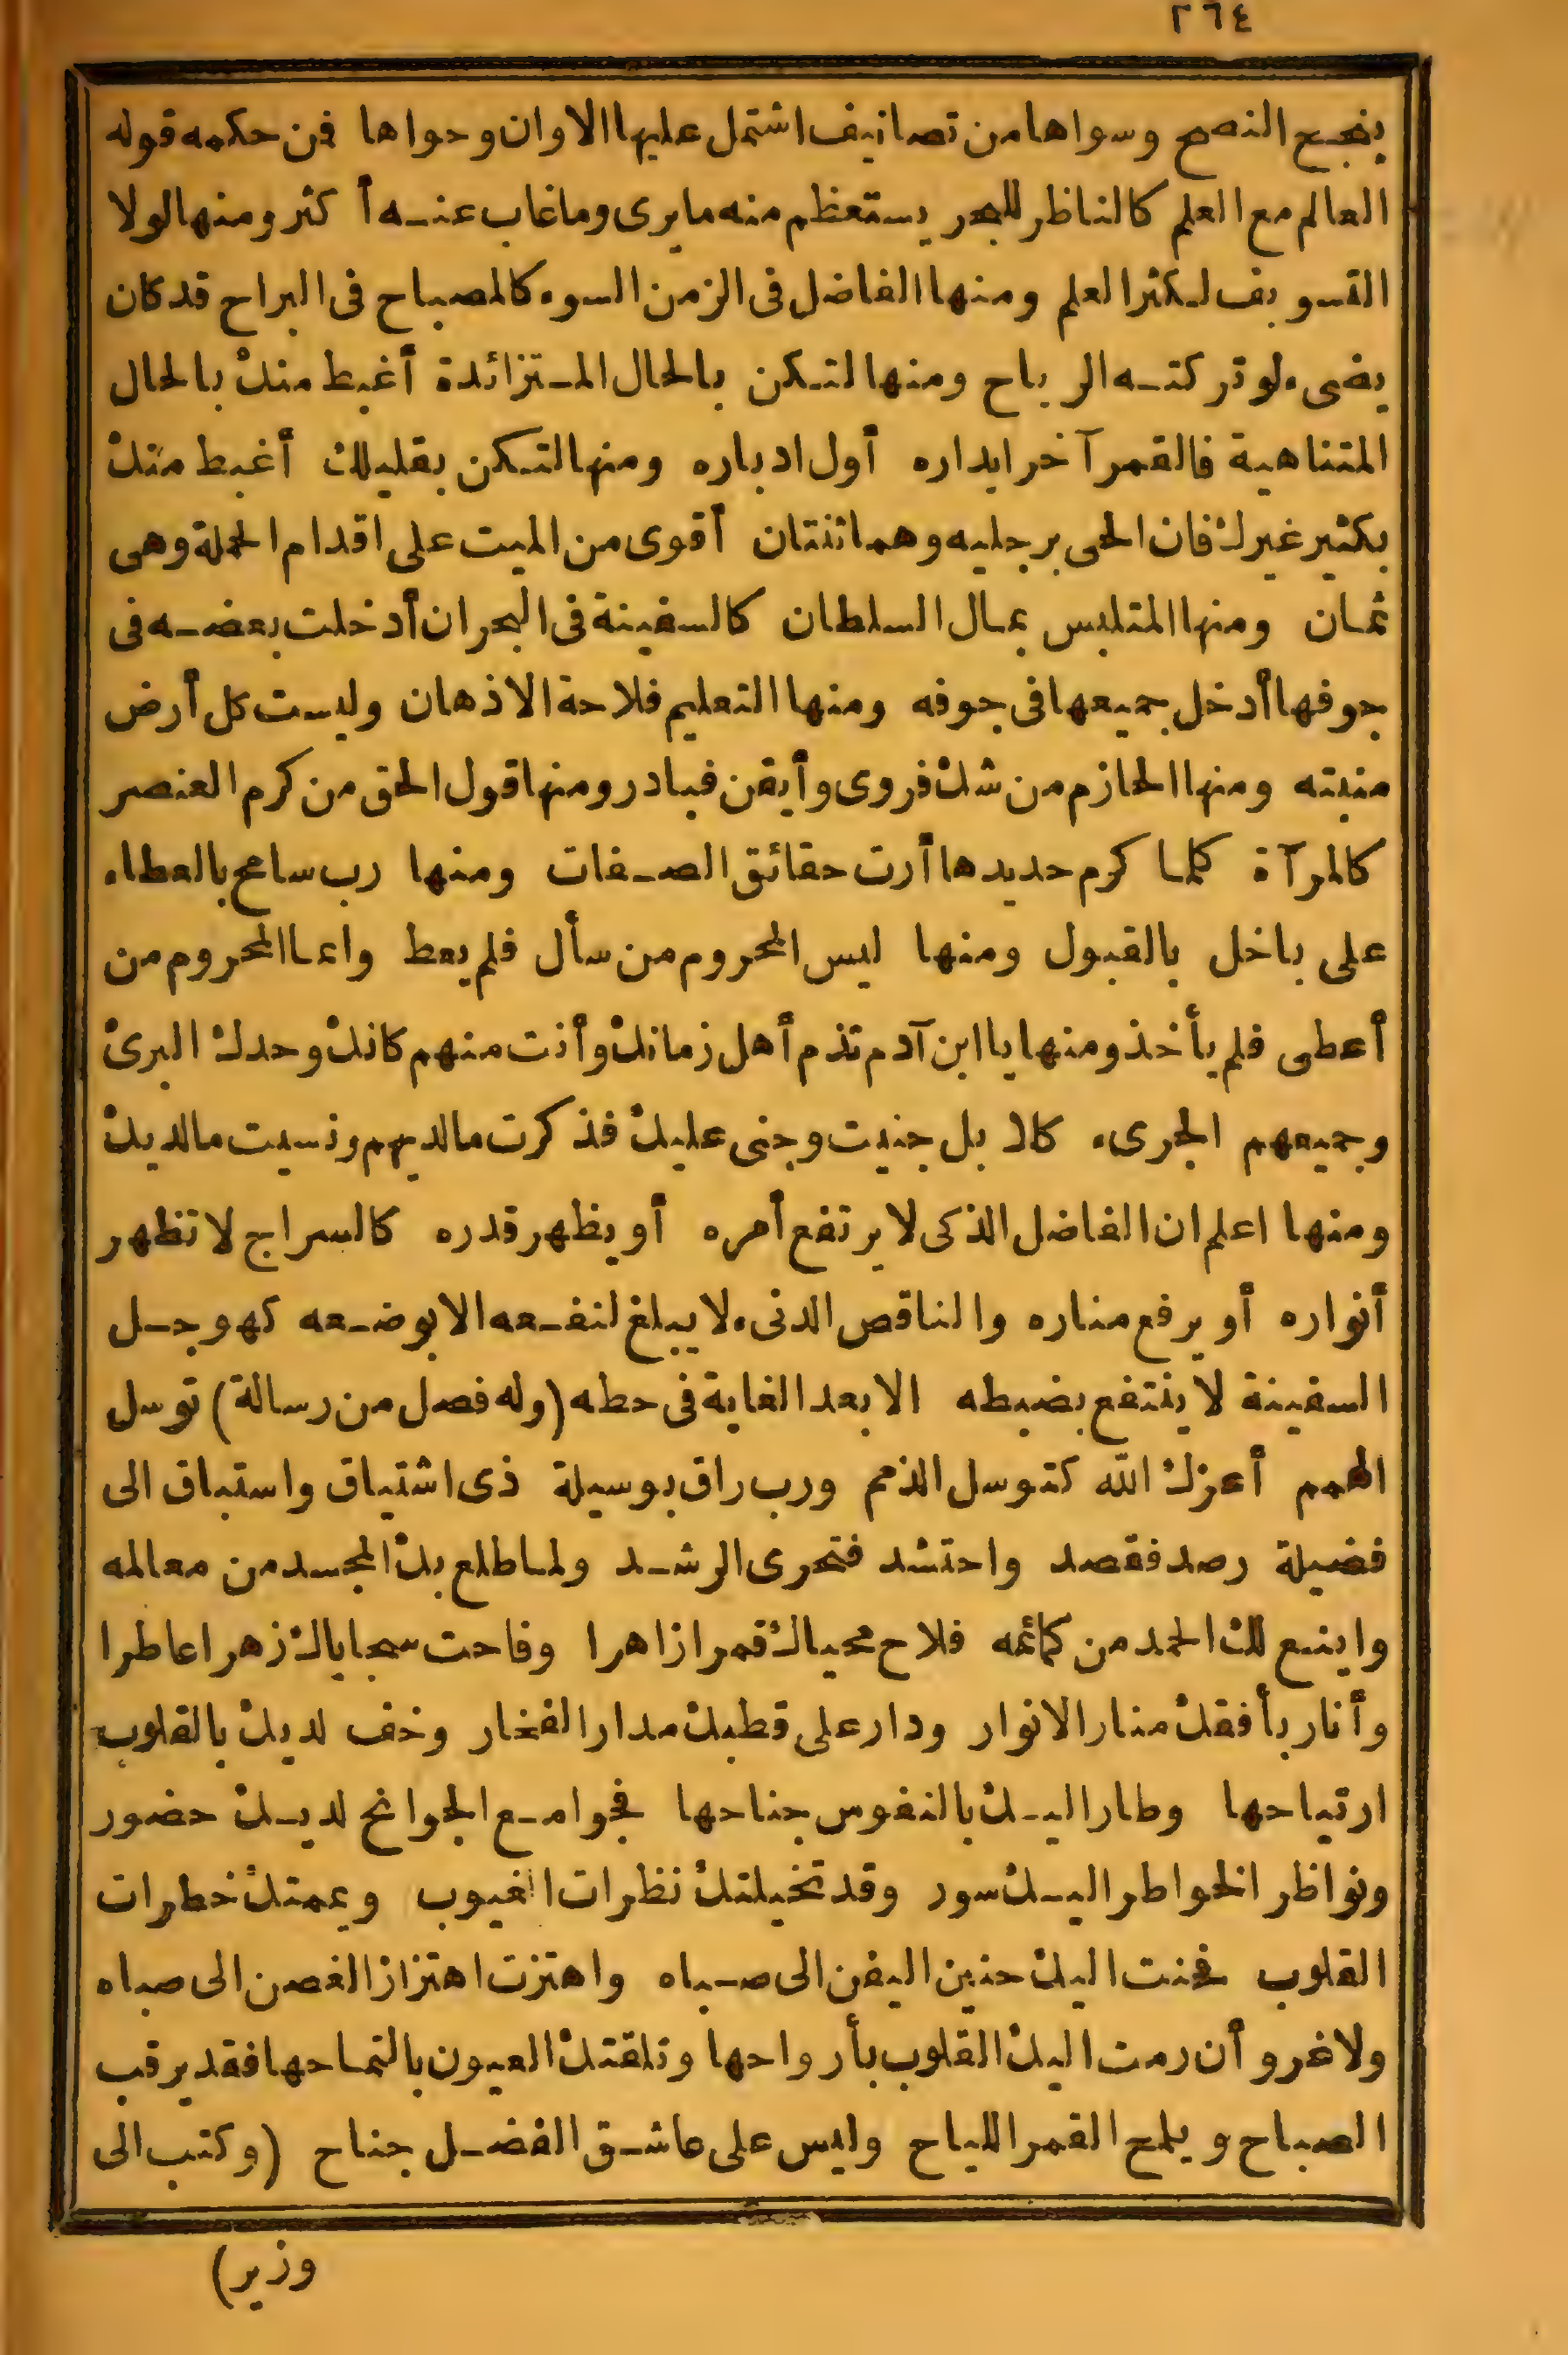 ٢٦٤
ينجح النصح وسواها من تصانيف اشتمل عليها الاوان وحواها فن حكمه قوله
العالم مع العلم كالناظر للبحر يستعظم منه ما يرى وما غاب عنه أكثر ومنها لولا
التسويف لكثر العلم ومنها الفاضل فى الزمن السوء كالمصباح فى البراح قد كان
يضىء لو تركته الرياح ومنها لتكن بالحال المتزائدة أغبط منك بالحال
المتناهية فالقمر آخر ابداره أول ادباره ومنها لتكن بقليلك أغبط منك
بكثير غيرك فان الحى برجليه وهما ثنتان أقوى من الميت على اقدام الحملة وهى
ثمان ومنها المتلبس بمال السلطان كالسفينة فى البحر ان أدخلت بعضه فى
جوفها أدخل جميعها فى جوفه ومنها التعليم فلاحة الاذهان وليست كل أرض
منبته ومنها الحازم من شك فروى وأيقن فبادر ومنها قول الحق من كرم العنصر
كالمرآة كلما كرم حديدها أرت حقائق الصفات ومنها رب سامح بالعطاء
على باخل بالقبول ومنها ليس المحروم من سأل فلم يعط وانما المحروم من
أعطى فلم يأخذ ومنها يا ابن آدم تذم أهل زمانك وأنت منهم كانك وحدك البرئ
وجميعهم الجرىء كلا بل جنيت وجنى عليك فذكرت ما لديهم ونسيت ما لديك
ومنها اعلم ان الفاضل الذكى لا يرتفع أمره أو يظهر قدره كالسراج لا تظهر
أنواره أو يرفع مناره والناقص الدنىء لا يبلغ لنفعه الا بوضعه كهوجل
السفينة لا ينتفع بضبطه الا بعد الغاية فى حطه (وله فصل من رسالة) توسل
الهمم أعزك الله كتوسل الذمم ورب راق بوسيلة ذى اشتياق واستباق الى
فضيلة رصد فقصد واحتشد فتحرى الرشد ولما طلع بك المجد من معالمه
واينع لك الحمد من كمائمه فلاح محياك قمرا زاهرا وفاحت سجاياك زهرا عاطرا
وأنار بأفقك منار الانوار ودار على قطبك مدار الفخار وخف لديك بالقلوب
ارتياحها وطار اليك بالنفوس جناحها فجوامع الجوانح لديك حضور
ونواظر الخواطر اليك سور وقد تخيلتك نظرات الغيوب وعمتك خطرات
القلوب فحنت اليك حنين اليفن الى صباه واهتزت اهتزاز الغصن الى صباه
ولا غرو أن رمت اليك القلوب بأرواحها وتلقتك العيون بالتماحها فقد يرقب
الصباح ويلمح القمر اللياح وليس على عاشق الفضل جناح (وكتب الى
وزير)